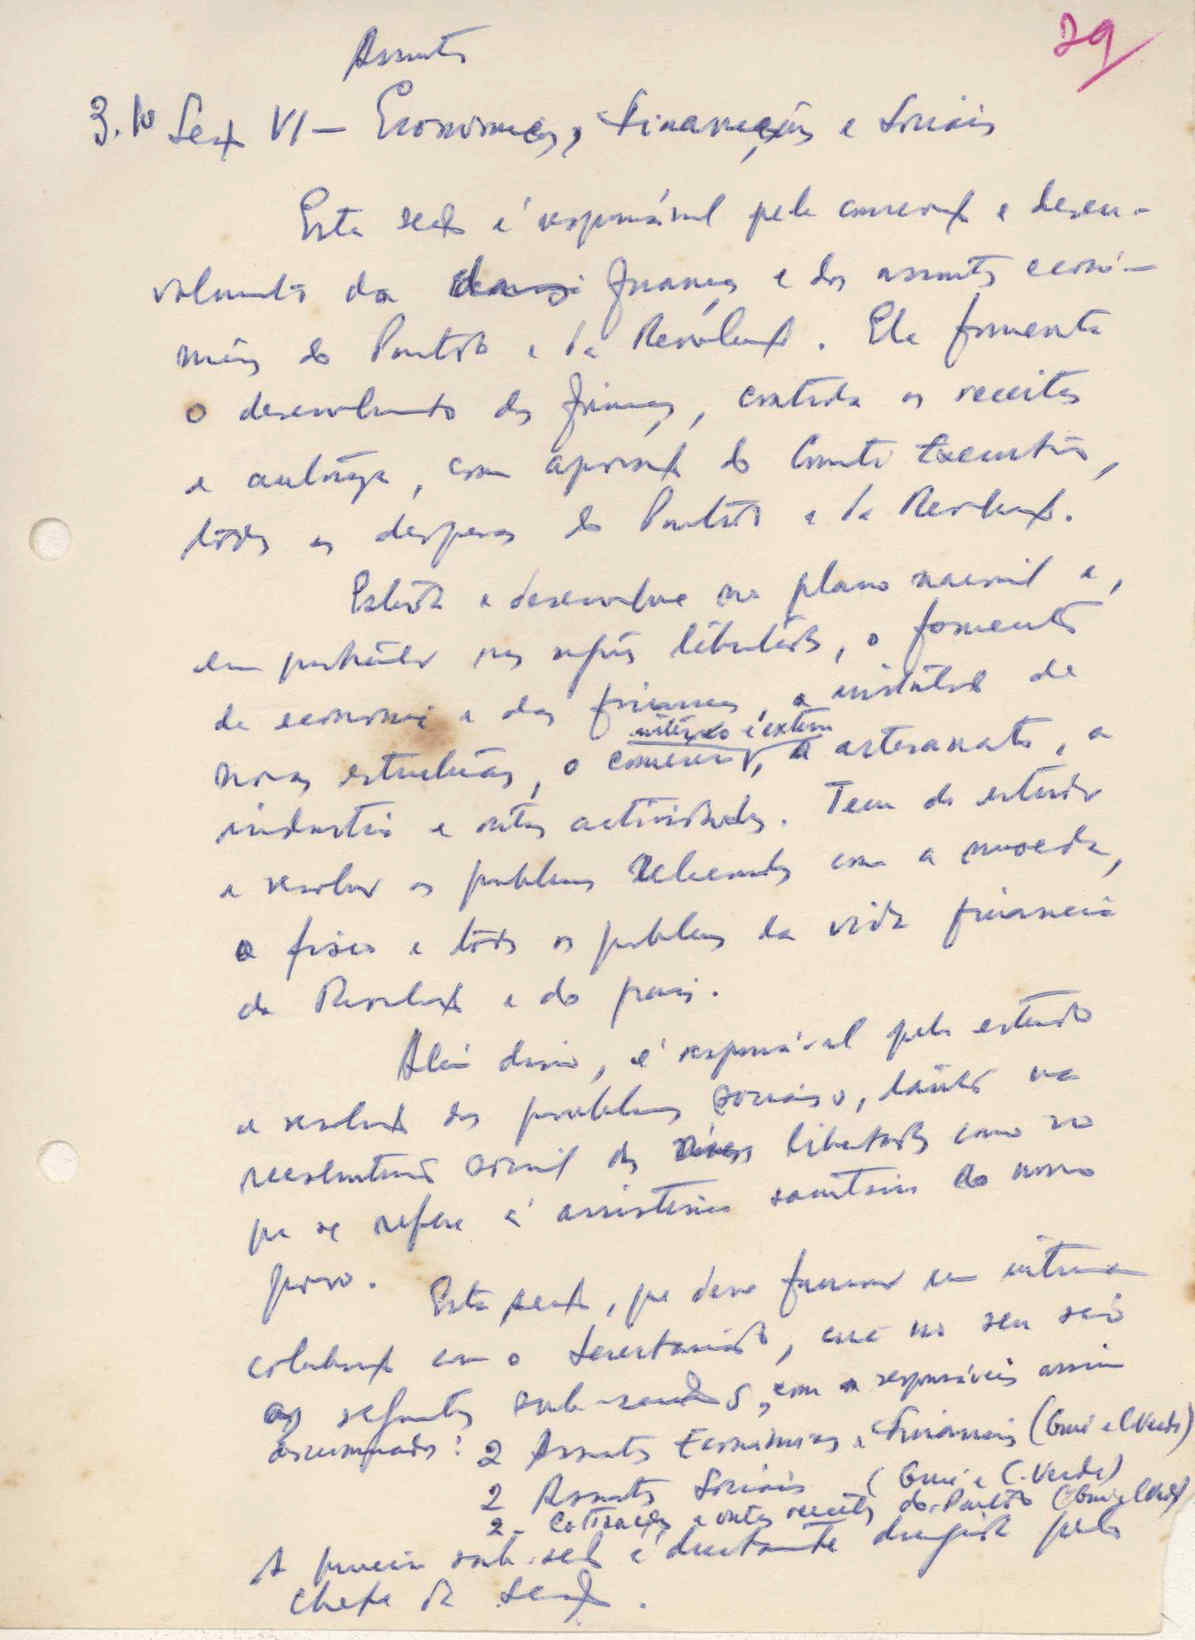 29
Assuntos
3.10 Secç VI – Económicos, Financeiros e Sociais
Esta secç é responsável pela conservaç e desen-
volvimento das finanças e dos assuntos econó-
micos do Partido e da Revoluç. Ela fomenta
o desenvolvimento das finanças, controla as receitas
e autoriza, com aprovaç do Comité Executivo,
todas as despesas do Partido e da Revoluç.
Estuda e desenvolve no plano nacional e,
em particular nas regiões libertadas, o fomento
da economia e das finanças, a instituiç de
interno e externo
novas estruturas, o comércio, o artesanato, a
indústria e outras actividades. Tem de estudar
e resolver os problemas relacionados com a moeda,
o fisco e todos os problemas da vida financeira
da Revoluç e do país.
Além disso, é responsável pelo estudo
e resoluç dos problemas sociais, tanto na
reestruturaç social das libertadas como no
que se refere à assistência sanitária do nosso
povo.
Esta secç, que deve funcionar em íntima
colaboraç com o Secretariado, cria no seu seio
as seguintes sub-secções, com os responsáveis assim
discriminados: 2 Assuntos Económicos e Financeiros (Guiné e C. Verde)
2 Assuntos Sociais (Guiné e C. Verde)
2 - Cotizações e outras receitas do Partido (Guiné e C. Verde)
A primeira sub-secç é directamente dirigida pelo
chefe da Secç.